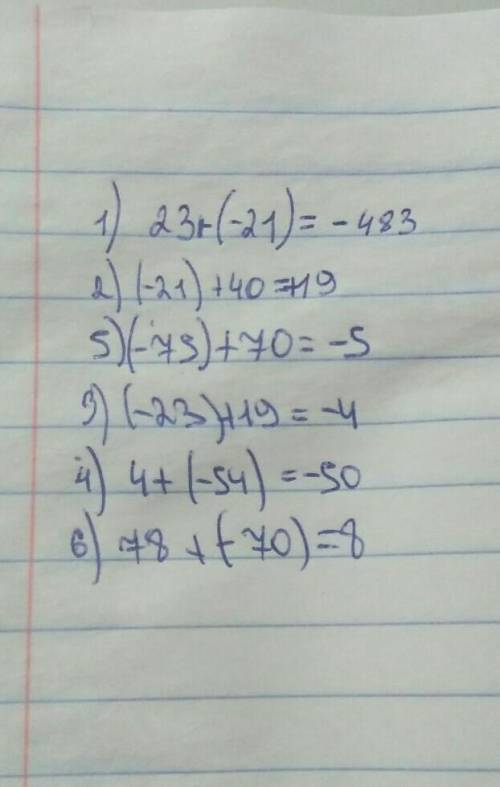 1) 23+(-21)= -483
2) (-21)+40=+19
5) (-75)+70=-5
3) (-23)+19=-4
4) 4+(-54)=-50
6) 78+(-70)=8